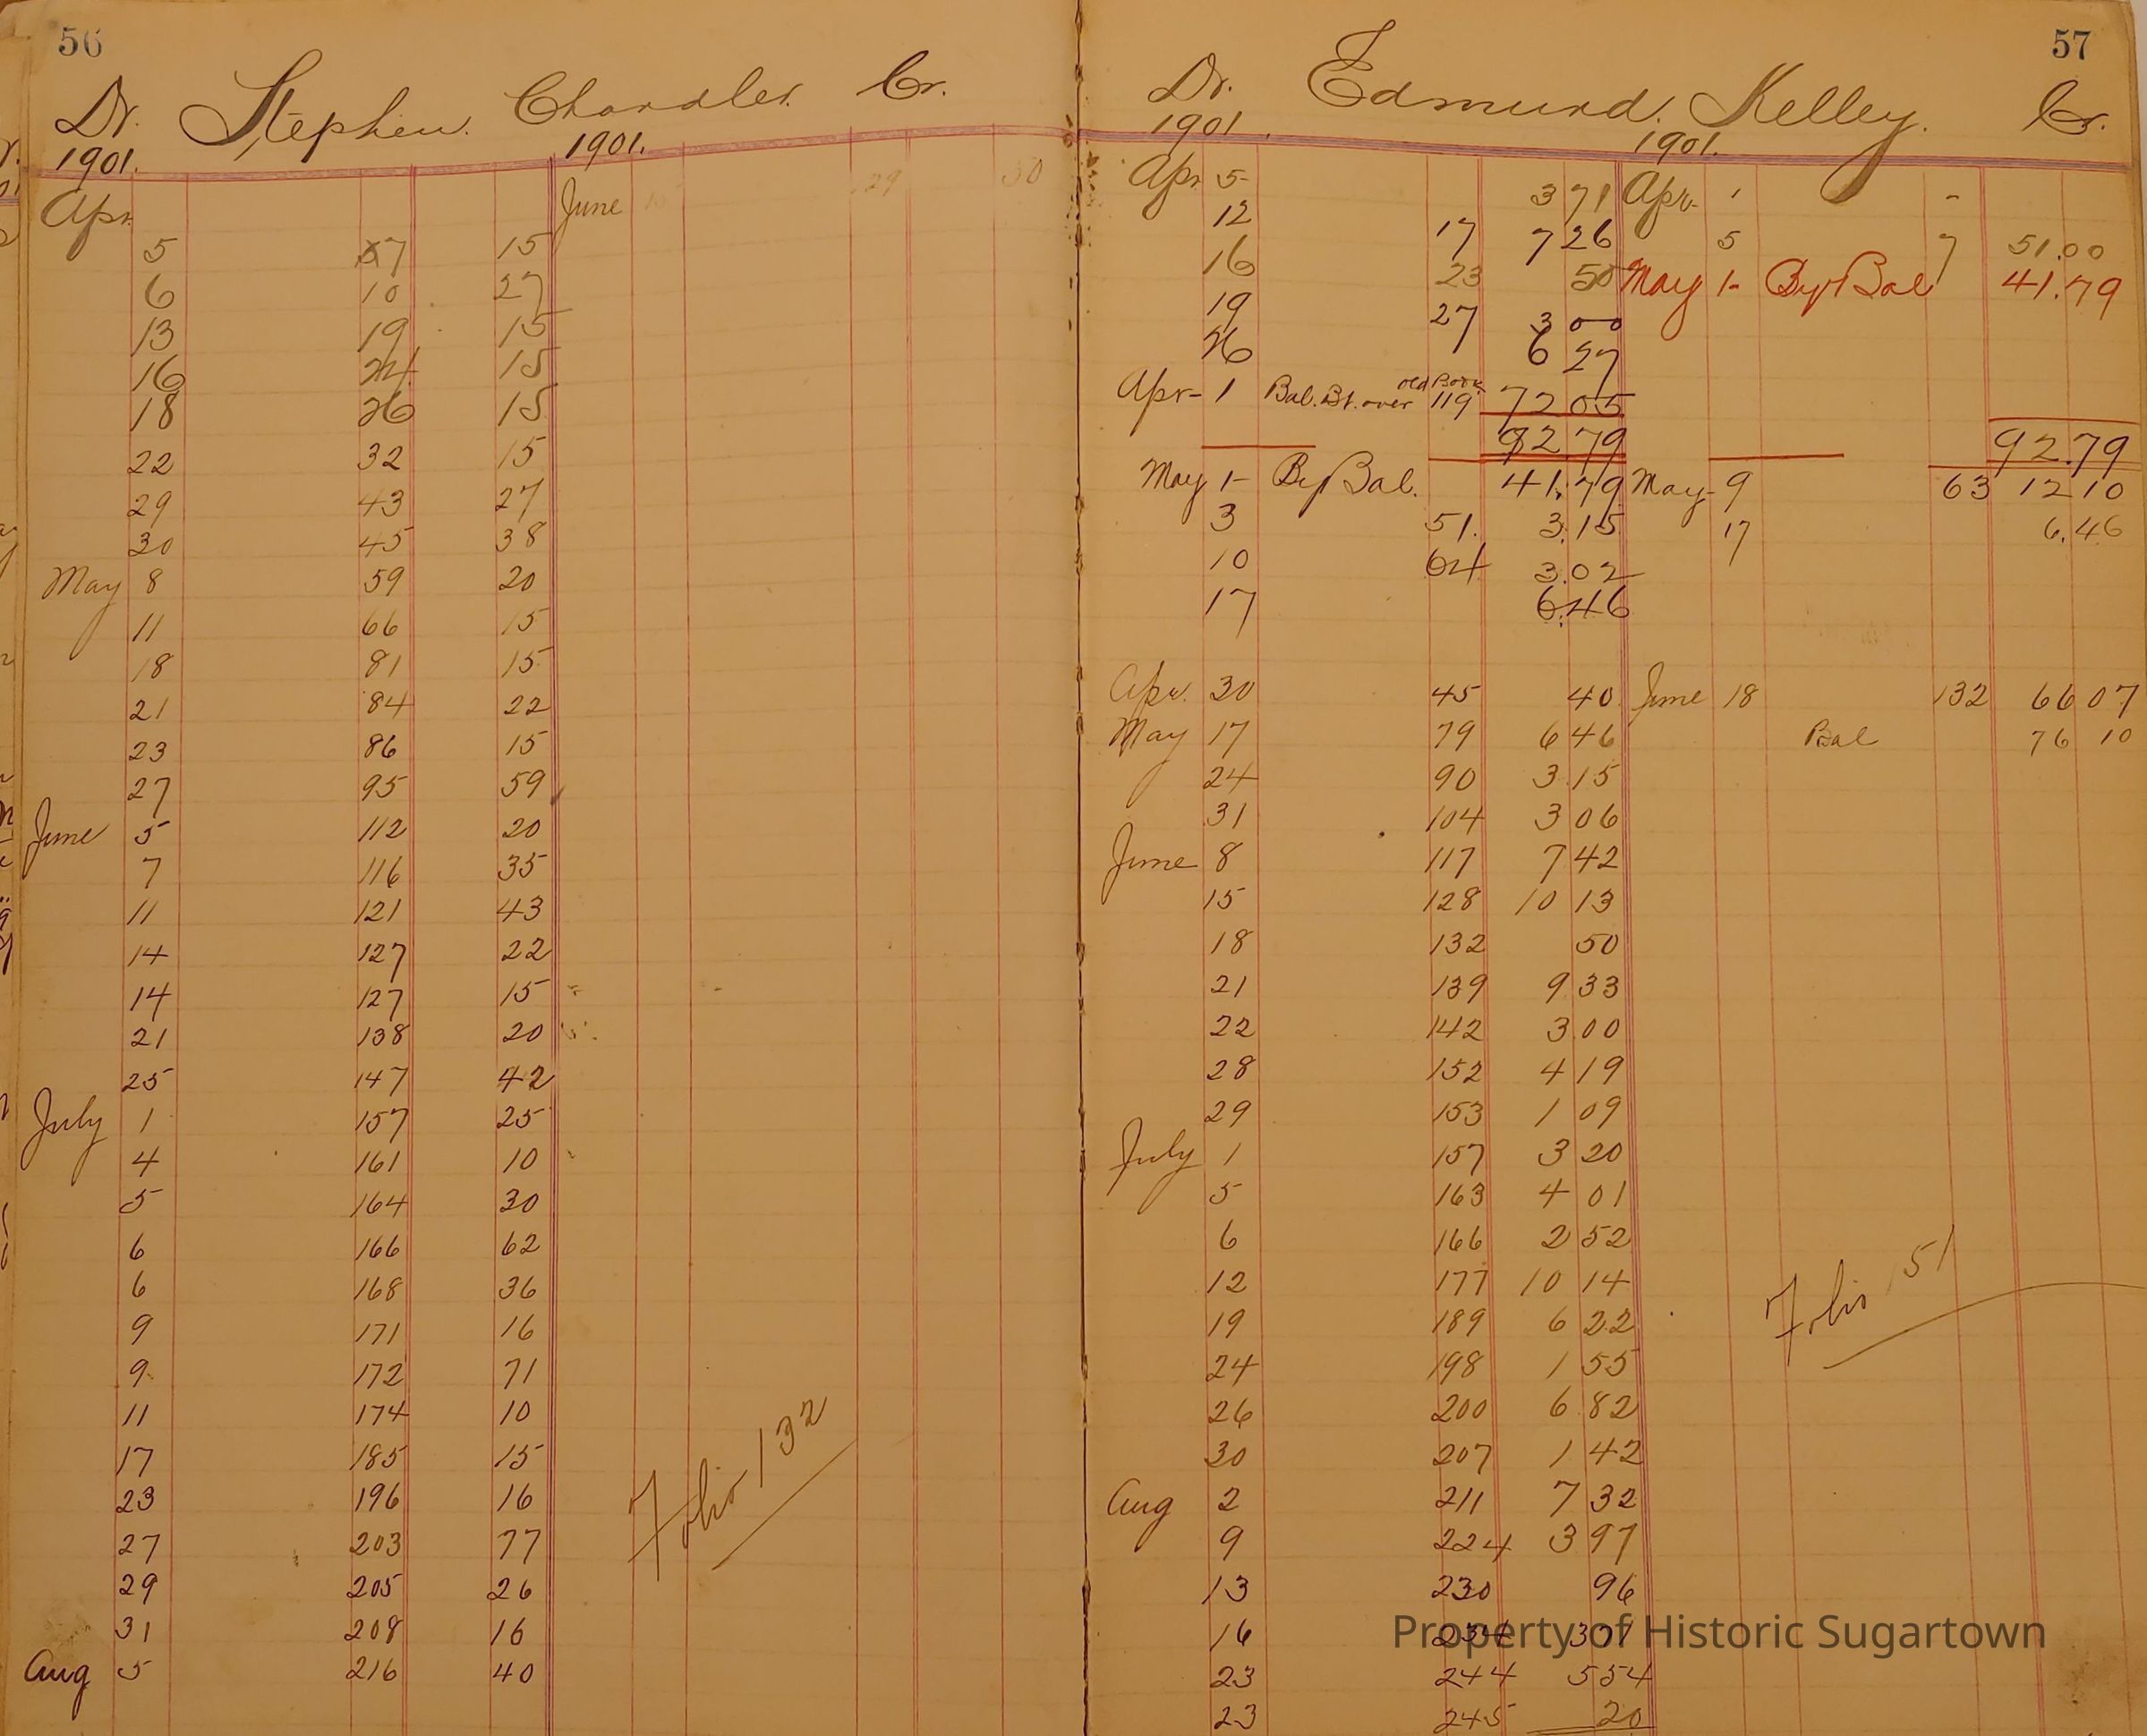 56
Dr. Stephen Chandler Cr.
1901. 1901.
Apr. June
5 7 15
6 10 27
13 19 15
16 24 15
18 26 15
22 32 15
29 43 27
30 45 38
May 8 59 20
11 66 15
18 81 15
21 84 22
23 86 15
27 95 59
June 5 112 20
7 116 35
11 121 43
14 127 22
14 127 15
21 138 20
25 147 42
July 1 157 25
4 161 10
5 164 30
6 166 62
6 168 36
9 171 16
9 172 71
11 174 10
17 185 15
23 196 16
27 203 77
29 205 26
31 208 16
Aug 5 216 40
Folio 132
57
Dr. Edmund Kelley. Cr.
1901. 1901.
Apr 5 3 71 Apr. 1 -
12 17 7 26 5 7 51.00
16 23 50 May 1- By Bal 41.79
19 27 3 00
26 6 27
Apr- 1 Bal. Bt. over old Book 119 72 05
92 79 92.79
May 1- By Bal. 41.79 May- 9 63 12 10
3 51. 3.15 17 6.46
10 64 3.02
17 6.46
Apr. 30 45 40 June 18 132 66 07
May 17 79 6 46 Bal 76 10
24 90 3 15
31 104 3 06
June 8 117 7 42
15 128 10 13
18 132 50
21 139 9 33
22 142 3 00
28 152 4 19
29 153 1 09
July 1 157 3 20
5 163 4 01
6 166 2 52
12 177 10 14
19 189 6 22
24 198 1 55
26 200 6 82
30 207 1 42
Aug 2 211 7 32
9 224 3 97
13 230 96
16 234
23 244 5 54
23 245 20
Folio 151
Property of Historic Sugartown